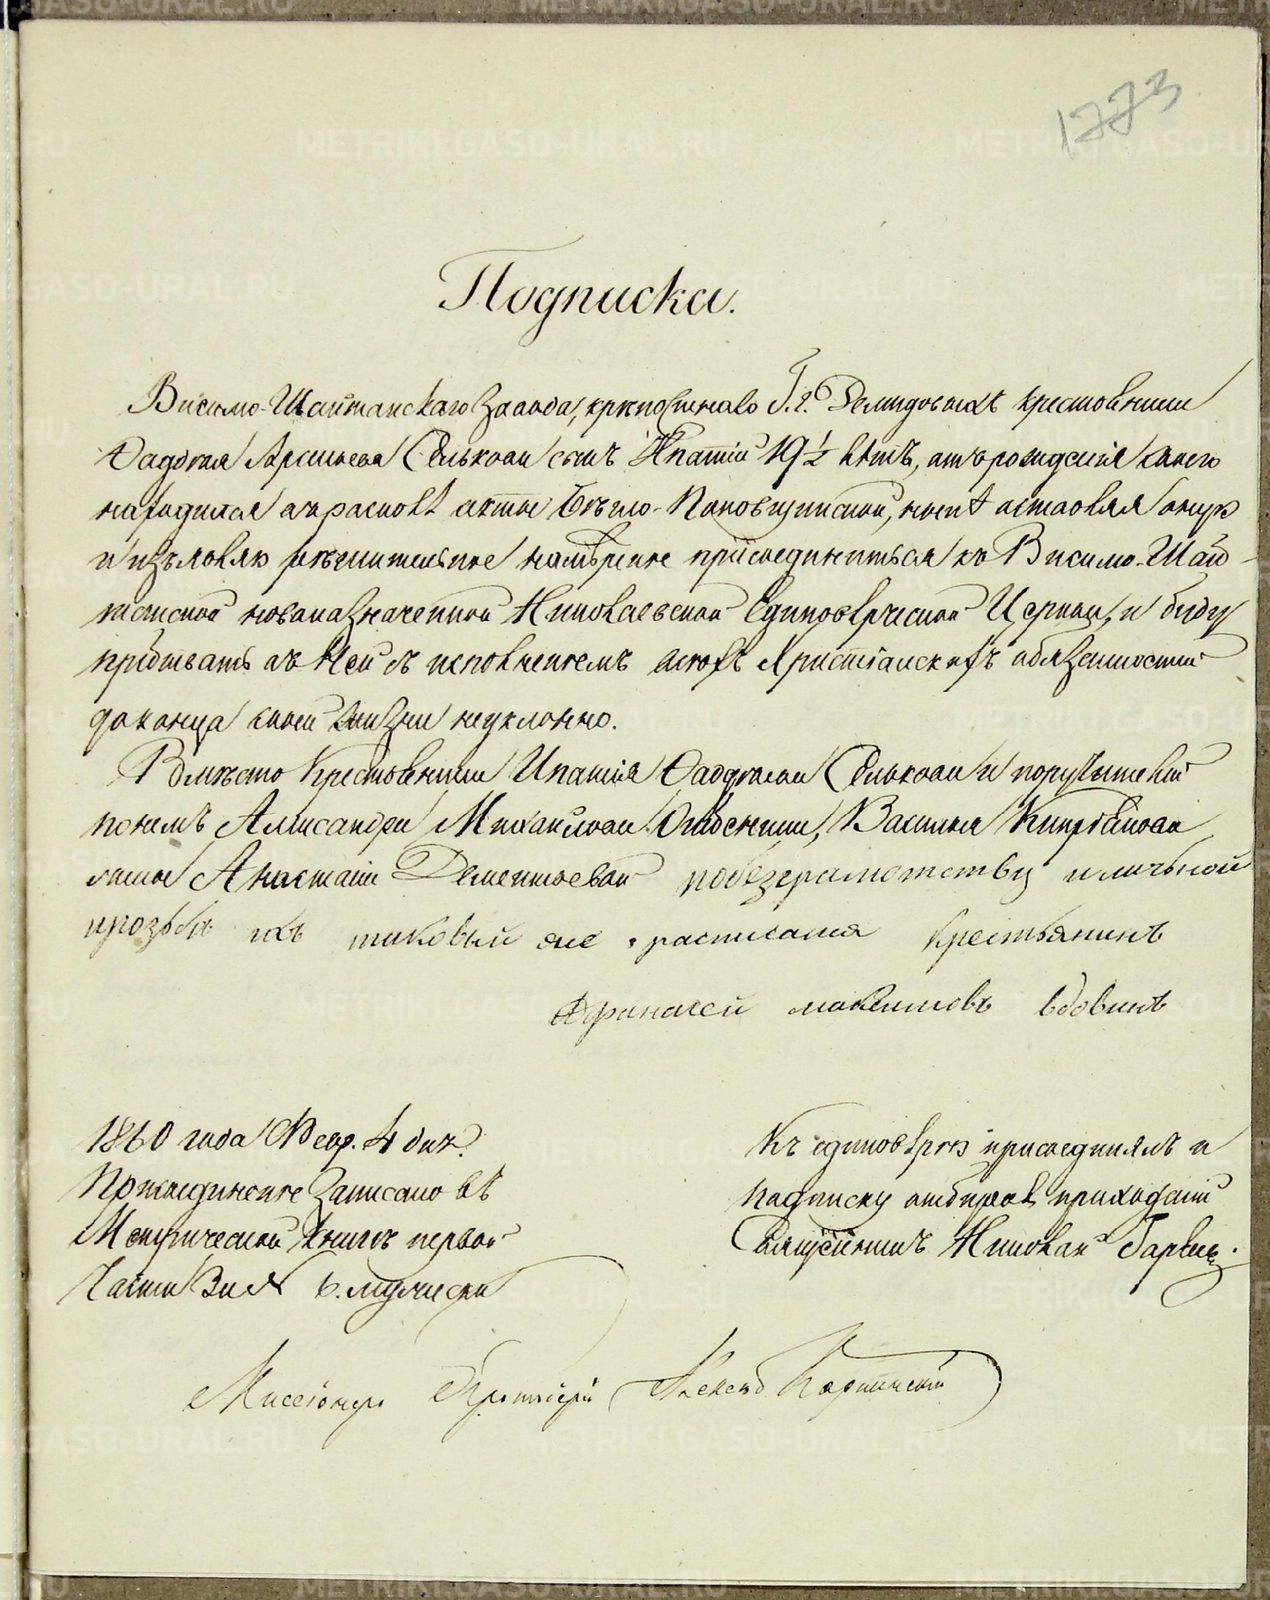 1773
Подписка.
Висимо-Шайтанскаго завода, крепостнаго Г.г. Демидовыхъ крестьянина
Фадѣя Арсеньева сынъ Ипатій 19½ лѣтъ, отъ рожденія своего
находился въ расколѣ секты Бѣгло-Поповщинской, нынѣ оставляя оную
и изъявляю рѣшительное намѣреніе присоединиться къ Висимо-Шай-
танской новоназначенной Николаевской Единовѣрческой Церкви, и буду
пребывать въ ней съ исполненіемъ всехъ Христіанскихъ обязанностей
до конца своей жизни неуклонно.
Вместо Крестьянина Ипатія Фадѣева и поручителей
по немъ Александра Михайлова Василья Кипріянова
Анастасіи Дементьевой по безграматству и личьной
прозьбѣ ихъ таковый же росписался крестьянинъ
Афанасей макѣимовъ вдовинъ
1860 года Февр. 4 дня
Присоединеніе записано въ
Метрической книгѣ первой
части
Къ единовѣрію присоединялъ и
подписку отбиралъ приходскій
Священникъ Николай
Миссіонеръ Протоіерей Александ
METRIKI.GASO-URAL.RU